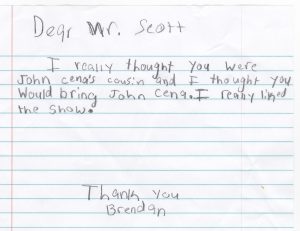 Dear Mr. Scott
I really thought you were
John cena's cousin and I thought you
Would bring John Cena. I really liked
the show.
Thank you
Brendan